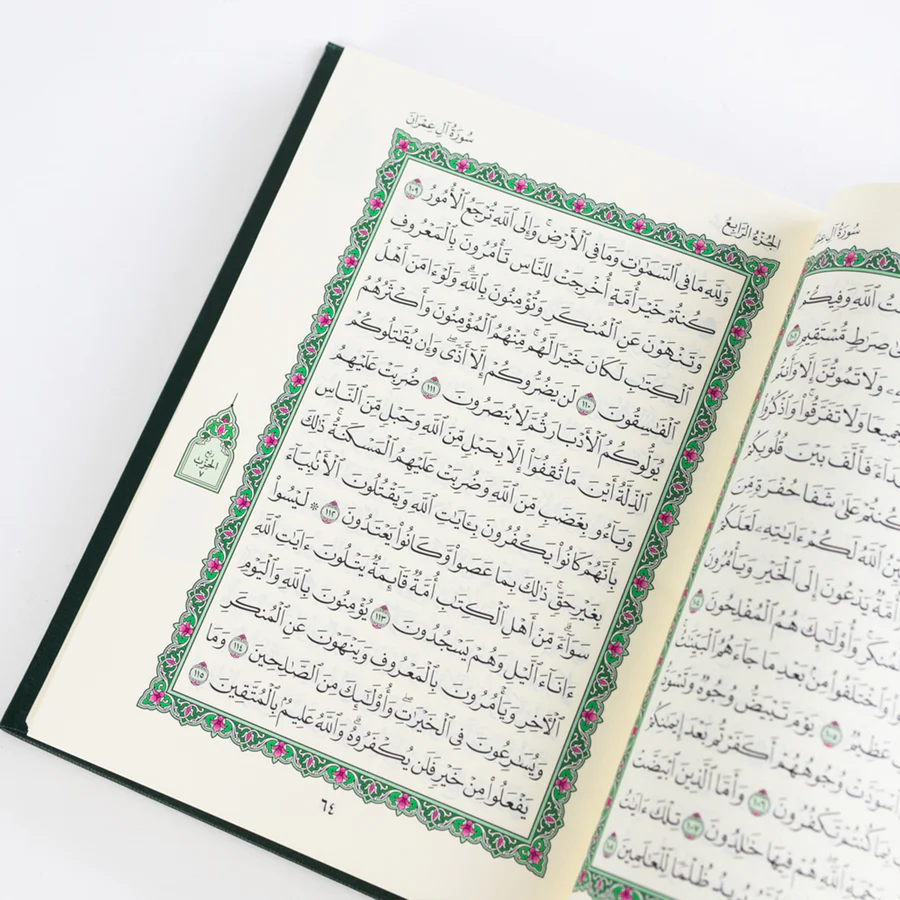 سُورَةُ آلِ عِمْرَانَ
تُ ٱللَّهِ وَفِيكُمْ
صِرَٰطٍ مُّسْتَقِيمٍ ١٠١
وَلَا تَمُوتُنَّ إِلَّا وَأَنتُم
جَمِيعًا وَلَا تَفَرَّقُوا۟ وَٱذْكُرُوا۟
فَأَلَّفَ بَيْنَ قُلُوبِكُمْ
كُنتُمْ عَلَىٰ شَفَا حُفْرَةٍ مِّنَ
ٱللَّهُ لَكُمْ ءَايَٰتِهِۦ لَعَلَّكُمْ
أُمَّةٌ يَدْعُونَ إِلَى ٱلْخَيْرِ وَيَأْمُرُونَ
وَأُو۟لَٰٓئِكَ هُمُ ٱلْمُفْلِحُونَ ١٠٤
وَٱخْتَلَفُوا۟ مِنۢ بَعْدِ مَا جَآءَهُمُ ٱلْبَيِّنَٰتُ
عَظِيمٌ ١٠٥ يَوْمَ تَبْيَضُّ وُجُوهٌ وَتَسْوَدُّ
ٱسْوَدَّتْ وُجُوهُهُمْ أَكَفَرْتُم بَعْدَ إِيمَٰنِكُمْ
بِمَا كُنتُمْ تَكْفُرُونَ ١٠٦ وَأَمَّا ٱلَّذِينَ ٱبْيَضَّتْ
ٱللَّهِ هُمْ فِيهَا خَٰلِدُونَ ١٠٧ تِلْكَ ءَايَٰتُ
يُرِيدُ ظُلْمًا لِّلْعَٰلَمِينَ ١٠٨
الجُزْءُ الرَّابِعُ
سُورَةُ آلِ عِمْرَانَ
وَلِلَّهِ مَا فِى ٱلسَّمَٰوَٰتِ وَمَا فِى ٱلْأَرْضِ ۚ وَإِلَى ٱللَّهِ تُرْجَعُ ٱلْأُمُورُ ١٠٩
كُنتُمْ خَيْرَ أُمَّةٍ أُخْرِجَتْ لِلنَّاسِ تَأْمُرُونَ بِٱلْمَعْرُوفِ
وَتَنْهَوْنَ عَنِ ٱلْمُنكَرِ وَتُؤْمِنُونَ بِٱللَّهِ ۗ وَلَوْ ءَامَنَ أَهْلُ
ٱلْكِتَٰبِ لَكَانَ خَيْرًا لَّهُم ۚ مِّنْهُمُ ٱلْمُؤْمِنُونَ وَأَكْثَرُهُمُ
ٱلْفَٰسِقُونَ ١١٠ لَن يَضُرُّوكُمْ إِلَّآ أَذًى ۖ وَإِن يُقَٰتِلُوكُمْ
يُوَلُّوكُمُ ٱلْأَدْبَارَ ثُمَّ لَا يُنصَرُونَ ١١١ ضُرِبَتْ عَلَيْهِمُ
ٱلذِّلَّةُ أَيْنَ مَا ثُقِفُوٓا۟ إِلَّا بِحَبْلٍ مِّنَ ٱللَّهِ وَحَبْلٍ مِّنَ ٱلنَّاسِ
وَبَآءُو بِغَضَبٍ مِّنَ ٱللَّهِ وَضُرِبَتْ عَلَيْهِمُ ٱلْمَسْكَنَةُ ۚ ذَٰلِكَ
بِأَنَّهُمْ كَانُوا۟ يَكْفُرُونَ بِـَٔايَٰتِ ٱللَّهِ وَيَقْتُلُونَ ٱلْأَنۢبِيَآءَ
بِغَيْرِ حَقٍّ ۚ ذَٰلِكَ بِمَا عَصَوا۟ وَّكَانُوا۟ يَعْتَدُونَ ١١٢ ۞ لَيْسُوا۟
سَوَآءً ۗ مِّنْ أَهْلِ ٱلْكِتَٰبِ أُمَّةٌ قَآئِمَةٌ يَتْلُونَ ءَايَٰتِ ٱللَّهِ
ءَانَآءَ ٱلَّيْلِ وَهُمْ يَسْجُدُونَ ١١٣ يُؤْمِنُونَ بِٱللَّهِ وَٱلْيَوْمِ
ٱلْءَاخِرِ وَيَأْمُرُونَ بِٱلْمَعْرُوفِ وَيَنْهَوْنَ عَنِ ٱلْمُنكَرِ
وَيُسَٰرِعُونَ فِى ٱلْخَيْرَٰتِ وَأُو۟لَٰٓئِكَ مِنَ ٱلصَّٰلِحِينَ ١١٤ وَمَا
يَفْعَلُوا۟ مِنْ خَيْرٍ فَلَن يُكْفَرُوهُ ۗ وَٱللَّهُ عَلِيمٌۢ بِٱلْمُتَّقِينَ ١١٥
ربع
الحزب
٧
٦٤